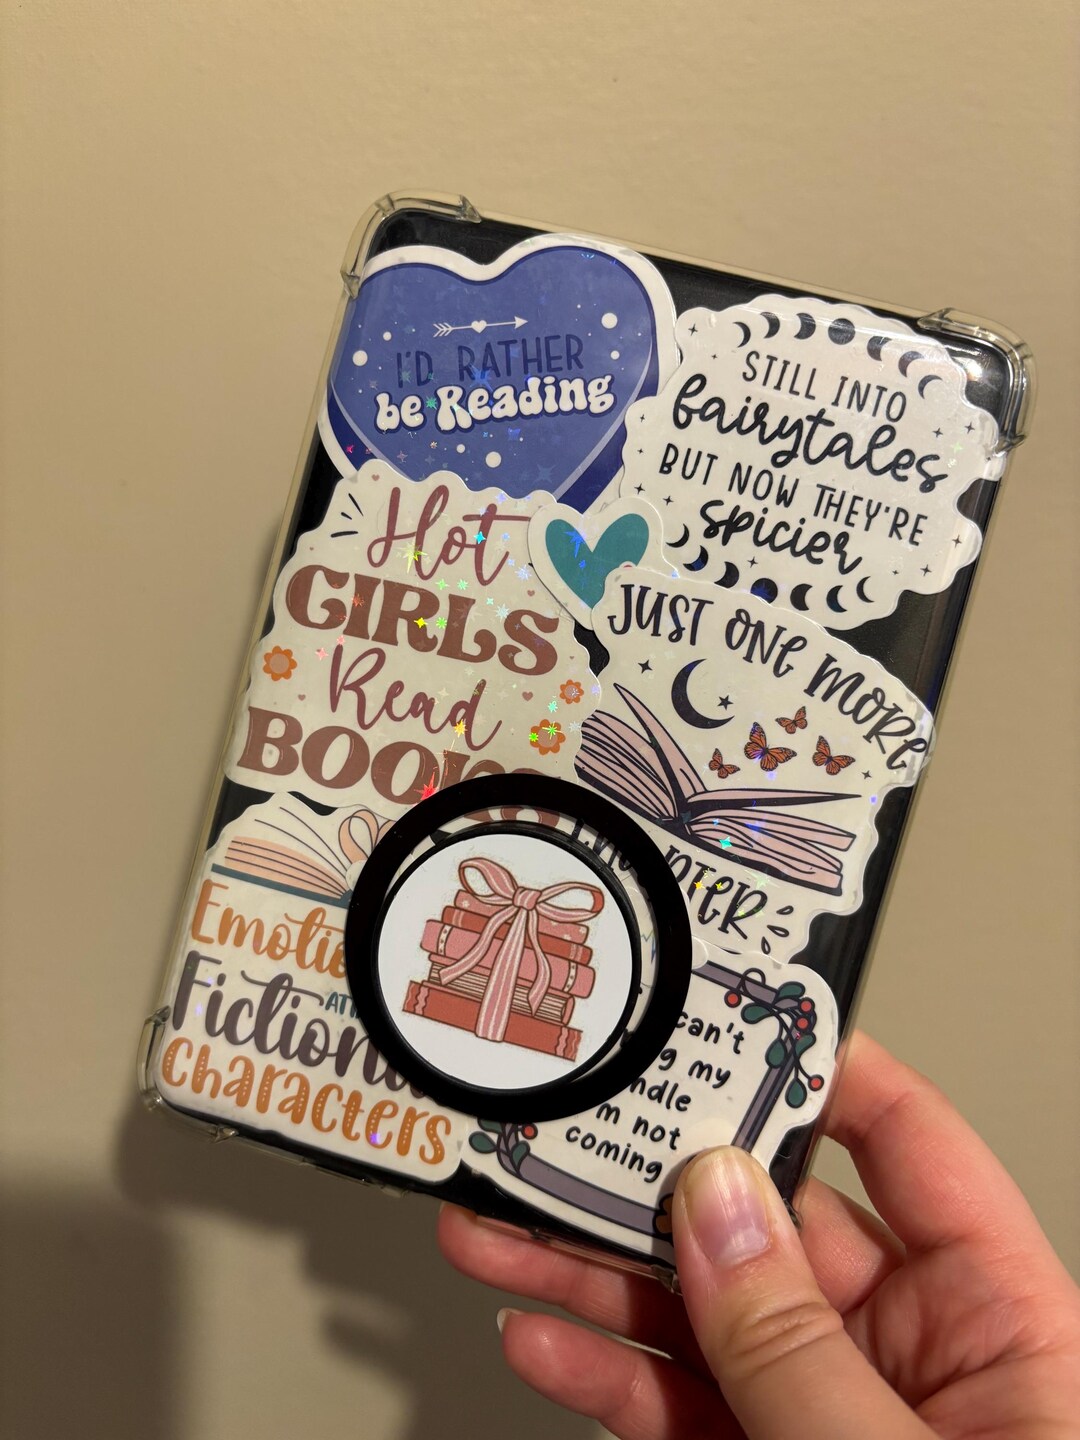 I'D RATHER
be Reading
STILL INTO
fairytales
BUT NOW THEY'RE
spicier
Hot
GIRLS
Read
BOOKS
JUST ONE MORE
CHAPTER
Fictional
Characters
can't
my
not
coming